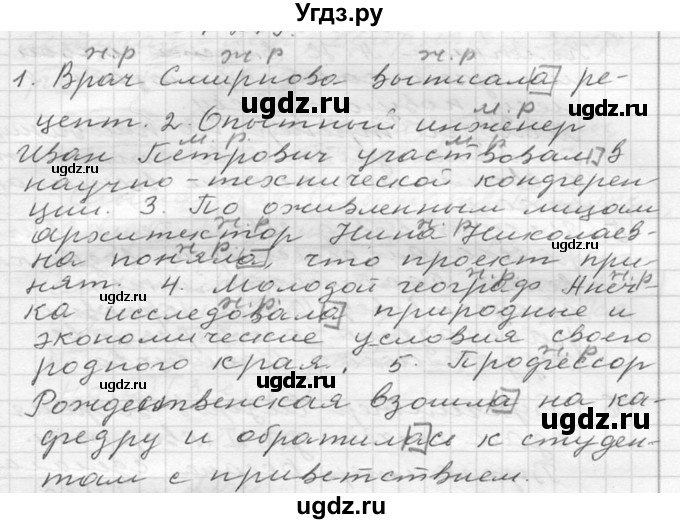 Угдз.ру
ж.р ж.р ж.р
1. Врач Смирнова выписала ре-
цепт. 2. Опытный инженер
м.р
Иван Петрович участвовал в
м.р. м.р.
научно-технической конферен-
ции. 3. По оживленным лицам
архитектор Нина Николаев-
ж.р. ж.р.
на поняла, что проект при-
ж.р.
нят. 4. Молодой географ Анеч-
ж.р. ж.р
ка исследовала природные и
ж.р.
экономические условия своего
родного края. 5. Профессор
ж.р
Рождественская взошла на ка-
федру и обратилась к студен-
там с приветствием.
ugdz.ru
ugdz.ru
ugdz.ru
ugdz.ru
ugdz.ru
ugdz.ru
ugdz.ru
ugdz.ru
ugdz.ru
ugdz.ru
ugdz.ru
ugdz.ru
ugdz.ru